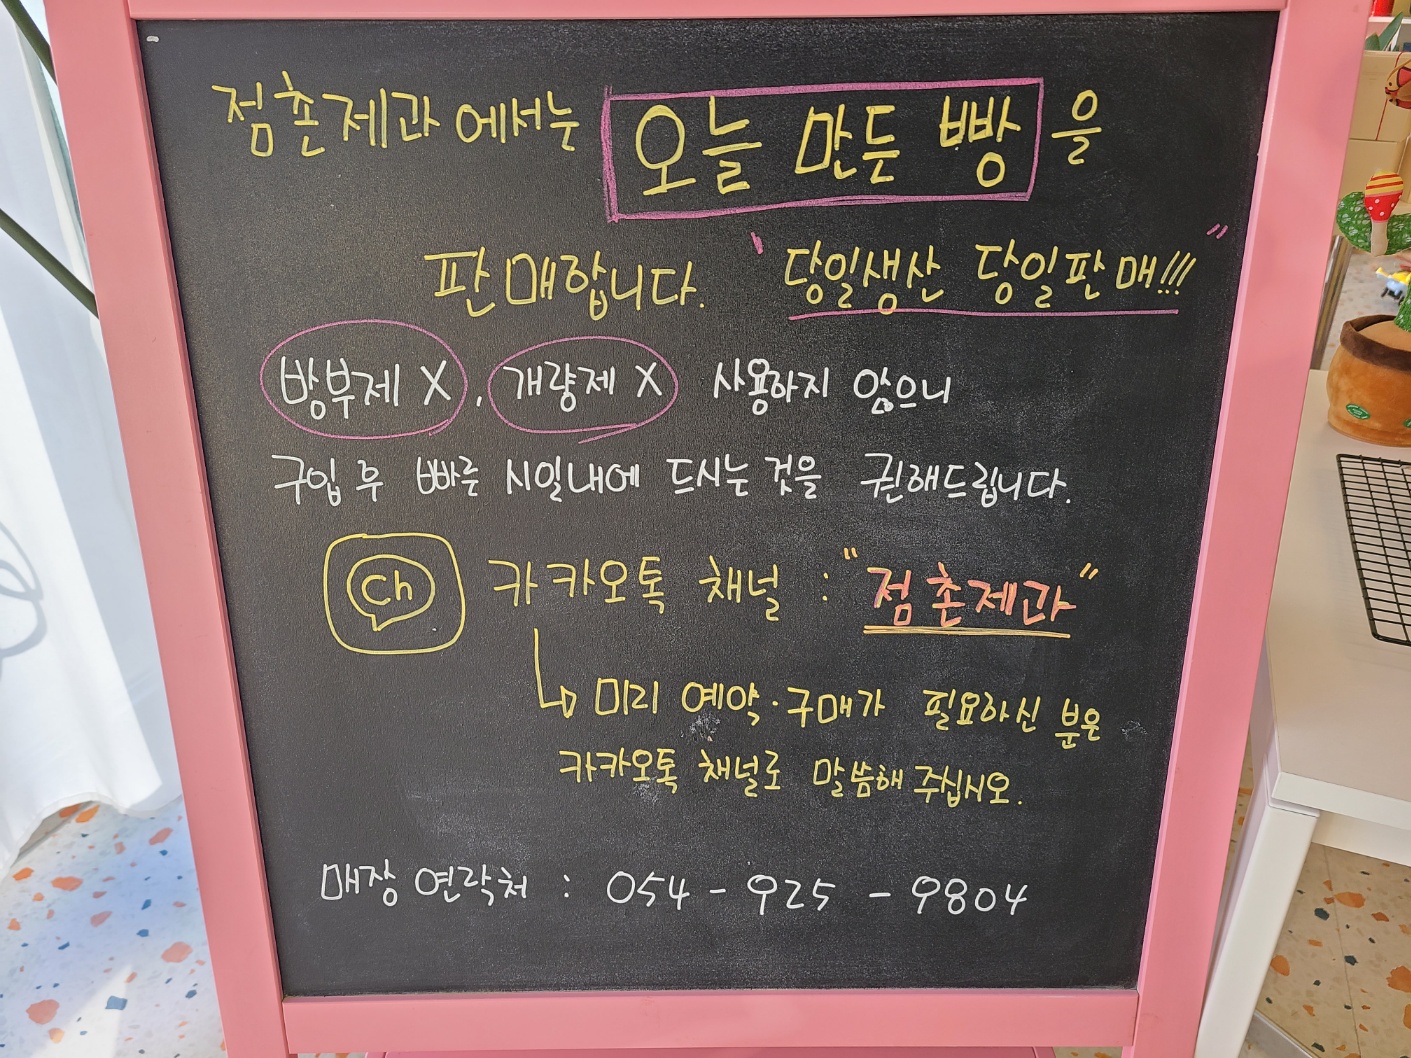 점촌제과에서는 오늘 만든 빵을
판매합니다. "당일생산 당일판매!!!"
방부제 X, 개량제 X 사용하지 않으니
구입 후 빠른 시일내에 드시는 것을 권해드립니다.
Ch 카카오톡 채널 : "점촌제과"
미리 예약·구매가 필요하신 분은
카카오톡 채널로 말씀해 주십시오.
매장 연락처 : 054-925-9804